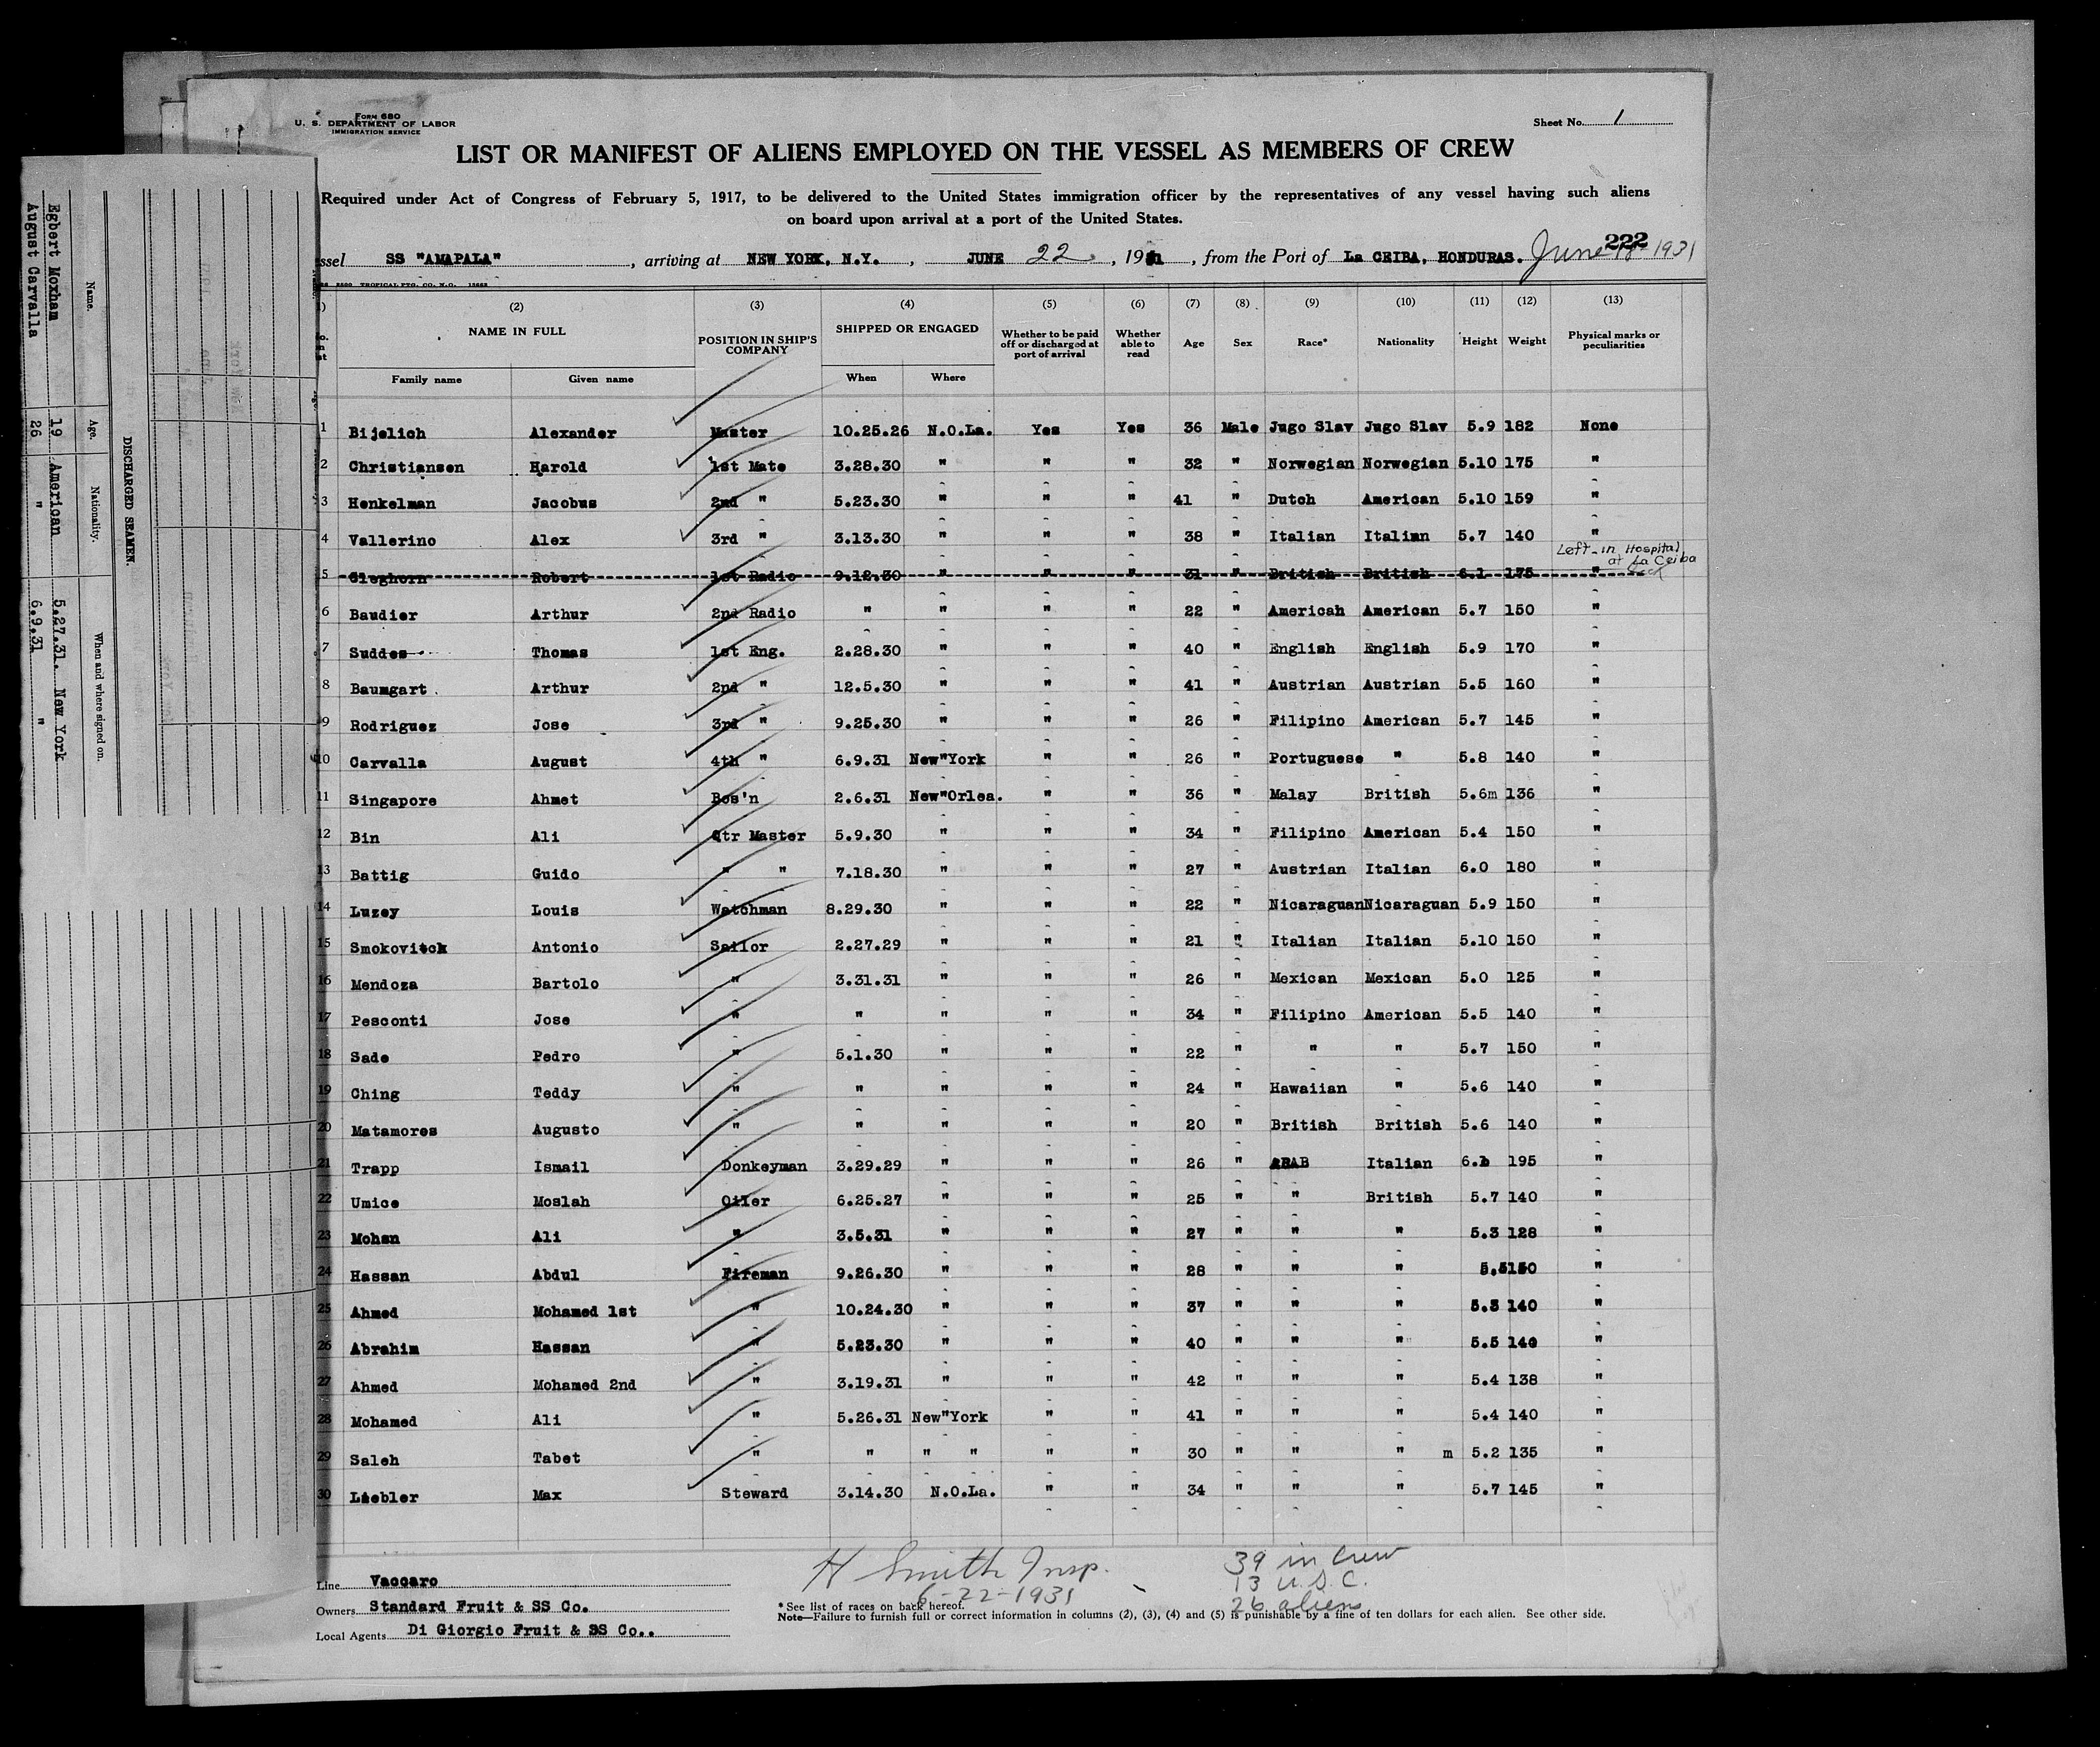 Form 680
U. S. DEPARTMENT OF LABOR
IMMIGRATION SERVICE
Sheet No. 1
LIST OR MANIFEST OF ALIENS EMPLOYED ON THE VESSEL AS MEMBERS OF CREW
Required under Act of Congress of February 5, 1917, to be delivered to the United States immigration officer by the representatives of any vessel having such aliens
on board upon arrival at a port of the United States.
222
ssel SS "AMAPALA", arriving at NEW YORK, N.Y., JUNE 22, 19 , from the Port of La CEIBA, HONDURAS. June 18 1931
(2) (3) (4) (5) (6) (7) (8) (9) (10) (11) (12) (13)
NAME IN FULL POSITION IN SHIP'S COMPANY SHIPPED OR ENGAGED Whether to be paid off or discharged at port of arrival Whether able to read Age Sex Race* Nationality Height Weight Physical marks or peculiarities
Family name Given name When Where
1 Bijelich Alexander Master 10.25.26 N.O.La. Yes Yes 36 Male Jugo Slav Jugo Slav 5.9 182 None
2 Christiansen Harold 1st Mate 3.28.30 " " " 32 " Norwegian Norwegian 5.10 175 "
3 Henkelman Jacobus 2nd " 5.23.30 " " " 41 " Dutch American 5.10 159 "
4 Vallerino Alex 3rd " 3.13.30 " " " 38 " Italian Italian 5.7 140 "
Left in Hospital
at La Ceiba
5 Cleghorn Robert 1st Radio 9.12.30 " " " 31 " British British 6.1 175 "
6 Baudier Arthur 2nd Radio " " " " 22 " American American 5.7 150 "
7 Suddes Thomas 1st Eng. 2.28.30 " " " 40 " English English 5.9 170 "
8 Baumgart Arthur 2nd " 12.5.30 " " " 41 " Austrian Austrian 5.5 160 "
9 Rodriguez Jose 3rd " 9.25.30 " " " 26 " Filipino American 5.7 145 "
10 Carvalla August 4th " 6.9.31 New"York " " 26 " Portuguese " 5.8 140 "
11 Singapore Ahmet Bos'n 2.6.31 New"Orlea. " " 36 " Malay British 5.6m 136 "
12 Bin Ali Qtr Master 5.9.30 " " " 34 " Filipino American 5.4 150 "
13 Battig Guido " " 7.18.30 " " " 27 " Austrian Italian 6.0 180 "
14 Luzey Louis Watchman 8.29.30 " " " 22 " Nicaraguan Nicaraguan 5.9 150 "
15 Smokovitch Antonio Sailor 2.27.29 " " " 21 " Italian Italian 5.10 150 "
16 Mendoza Bartolo " 3.31.31 " " " 26 " Mexican Mexican 5.0 125 "
17 Pesconti Jose " " " " " 34 " Filipino American 5.5 140 "
18 Sade Pedro " 5.1.30 " " " 22 " " " 5.7 150 "
19 Ching Teddy " " " " " 24 " Hawaiian " 5.6 140 "
20 Matamores Augusto " " " " " 20 " British British 5.6 140 "
21 Trapp Ismail Donkeyman 3.29.29 " " " 26 " ARAB Italian 6. 195 "
22 Umice Moslah Oiler 6.25.27 " " " 25 " " British 5.7 140 "
23 Mohsn Ali " 3.5.31 " " " 27 " " " 5.3 128 "
24 Hassan Abdul Fireman 9.26.30 " " " 28 " " " 5.5 150 "
25 Ahmed Mohamed 1st " 10.24.30 " " " 37 " " " 5.3 140 "
26 Abrahim Hassan " 5.23.30 " " " 40 " " " 5.5 140 "
27 Ahmed Mohamed 2nd " 3.19.31 " " " 42 " " " 5.4 138 "
28 Mohamed Ali " 5.26.31 New"York " " 41 " " " 5.4 140 "
29 Saleh Tabet " " " " " " 30 " " " m 5.2 135 "
30 Liebler Max Steward 3.14.30 N.O.La. " " 34 " " " 5.7 145 "
Line Vaccaro
Owners Standard Fruit & SS Co.
Local Agents Di Giorgio Fruit & SS Co..
H Smith Insp.
6-22-1931
39 in Crew
13 U.S.C.
26 aliens
* See list of races on back hereof.
Note—Failure to furnish full or correct information in columns (2), (3), (4) and (5) is punishable by a fine of ten dollars for each alien. See other side.
DISCHARGED SEAMEN.
Name. Age. Nationality. When and where signed on.
Egbert Moxham 19 American 5.27.31. New York
August Carvalla 26 " 6.9.31 "